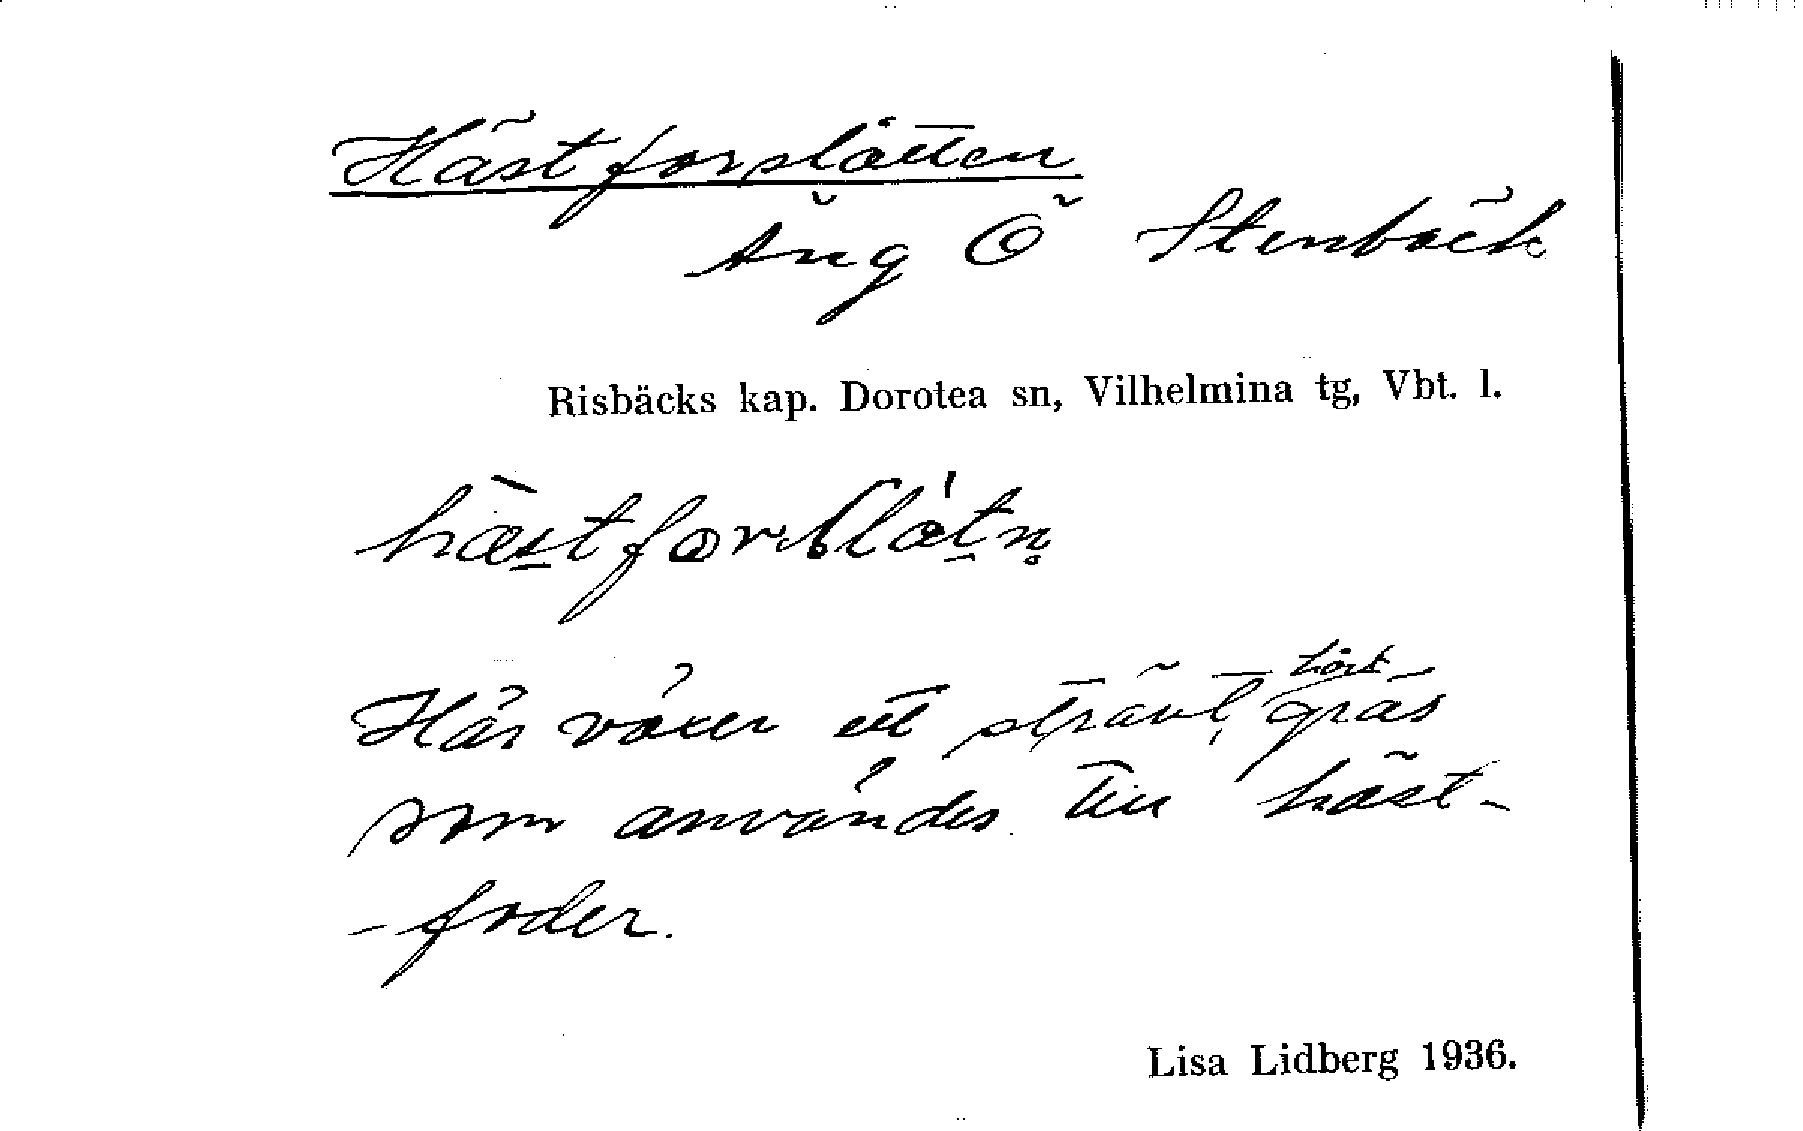 Hästforslåtten
Äng Ö Stenbäck
Risbäcks kap. Dorotea sn, Vilhelmina tg, Vbt. l.
Här växer ett strävt, hårt gräs
som användes till häst-
-foder.
Lisa Lidberg 1936.